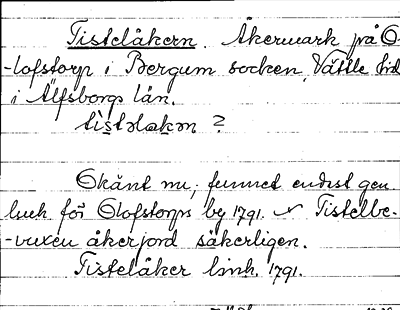 Tisteläkern. Åkermark på O-
-lofstorp i Bergum socken, Vättle hd
i Älfsborgs län.
tistəlakəṇ ?
Okänt nu, funnet endast gen.
luck för Olofstorps by 1791. Tistelbe-
-vuxen åkerjord säkerligen.
Tisteläker link. 1791.